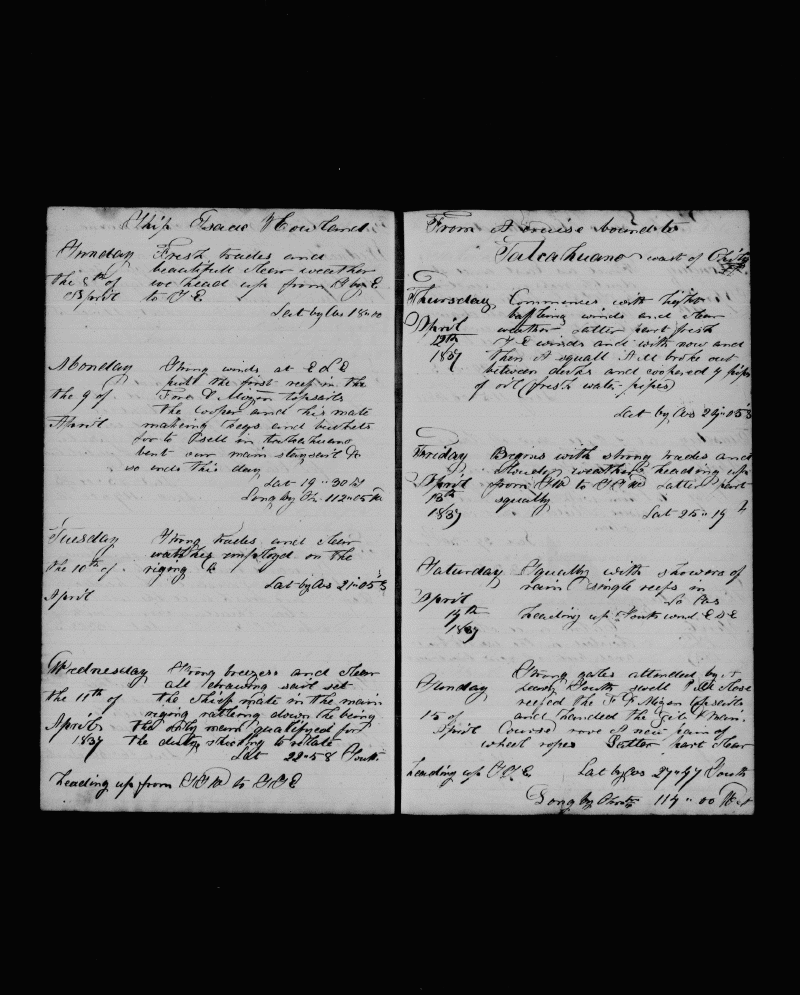 Ship Isaac Howland
Sunday Fresh trades and
beautifull clear weather
the 8th of we head up from S by E
April to S E
Lat by Obs 18 " 00
Monday Strong winds at E S E
put the first reef in the
the 9 of Fore & Mizen topsails
the Cooper and his mate
April making kegs and buckets
for to sell in Talcahuano
bent our main staysail &c
so ends this day
Lat 19 " 30
Long by Ch. 112 " 05
Tuesday Strong trades and clear
watches employd on the
the 10th of riging &c
Lat by Obs 21 " 05 S
April
Wednesday Strong breezes and clear
all drawing sail set
the 11th of the Ship mate in the main
riging ratleing down he being
April the only man qualified for
1837 the duty
Lat 22 " 58 South
heading up from to
From A cruise bound to
Talcahuano coast of
Thursday Commences with light
baffling winds and clear
April weather latter part fresh
12th winds and with now and
1837 then A squall
between decks and coopered 7 pipes
of oil (fresh water pipes)
Lat by Obs 24 " 05 S
Friday Begins with strong trades and
Cloudy weather heading up
April from to latter part
13th squally
1837 Lat 25 " 14
Saturday Squally with showers of
rain single reefs in
April No Obs
14th heading up South wind E S E
1837
Strong gales attended by A
Sunday heavy South swell Close
reefed the F & Mizen topsails
15 of and handed the jib & Main
April Course rove A new pair of
wheel ropes Latter part clear
heading up Lat by Obs 27 " 47 South
Long by Chro 114 " 00 West